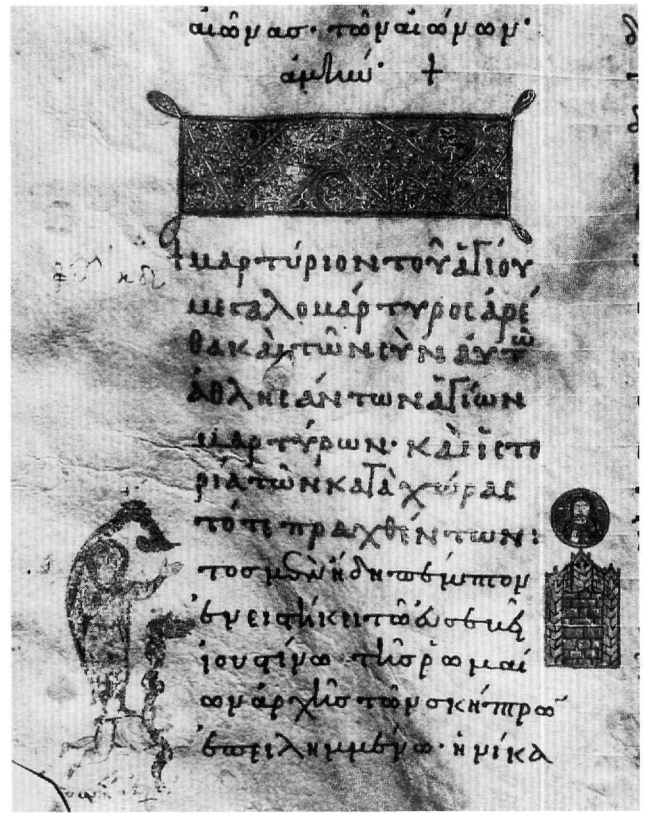 αἰῶνασ· τῶν αἰώνων·
ἀμήν· +
+ μαρτύριον τοῦ ἁγίου
μεγαλομάρτυρος ἀρέ
θα καὶ τῶν σὺν αὐτῶ
ἀθλησάντων ἁγίων
μαρτύρων· καὶ ἱστο
ρία τῶν κατὰ χώρας
τότε πραχθέντων:
τοσ μὲν ἤδη πέμπτον
ἐνειστήκει τῶ εὐσεβεῖ
ἰουστίνω τῆσ ῥωμαί
ων ἀρχῆσ τῶν σκήπτρων
ἐπειλημμένω· ἡνίκα